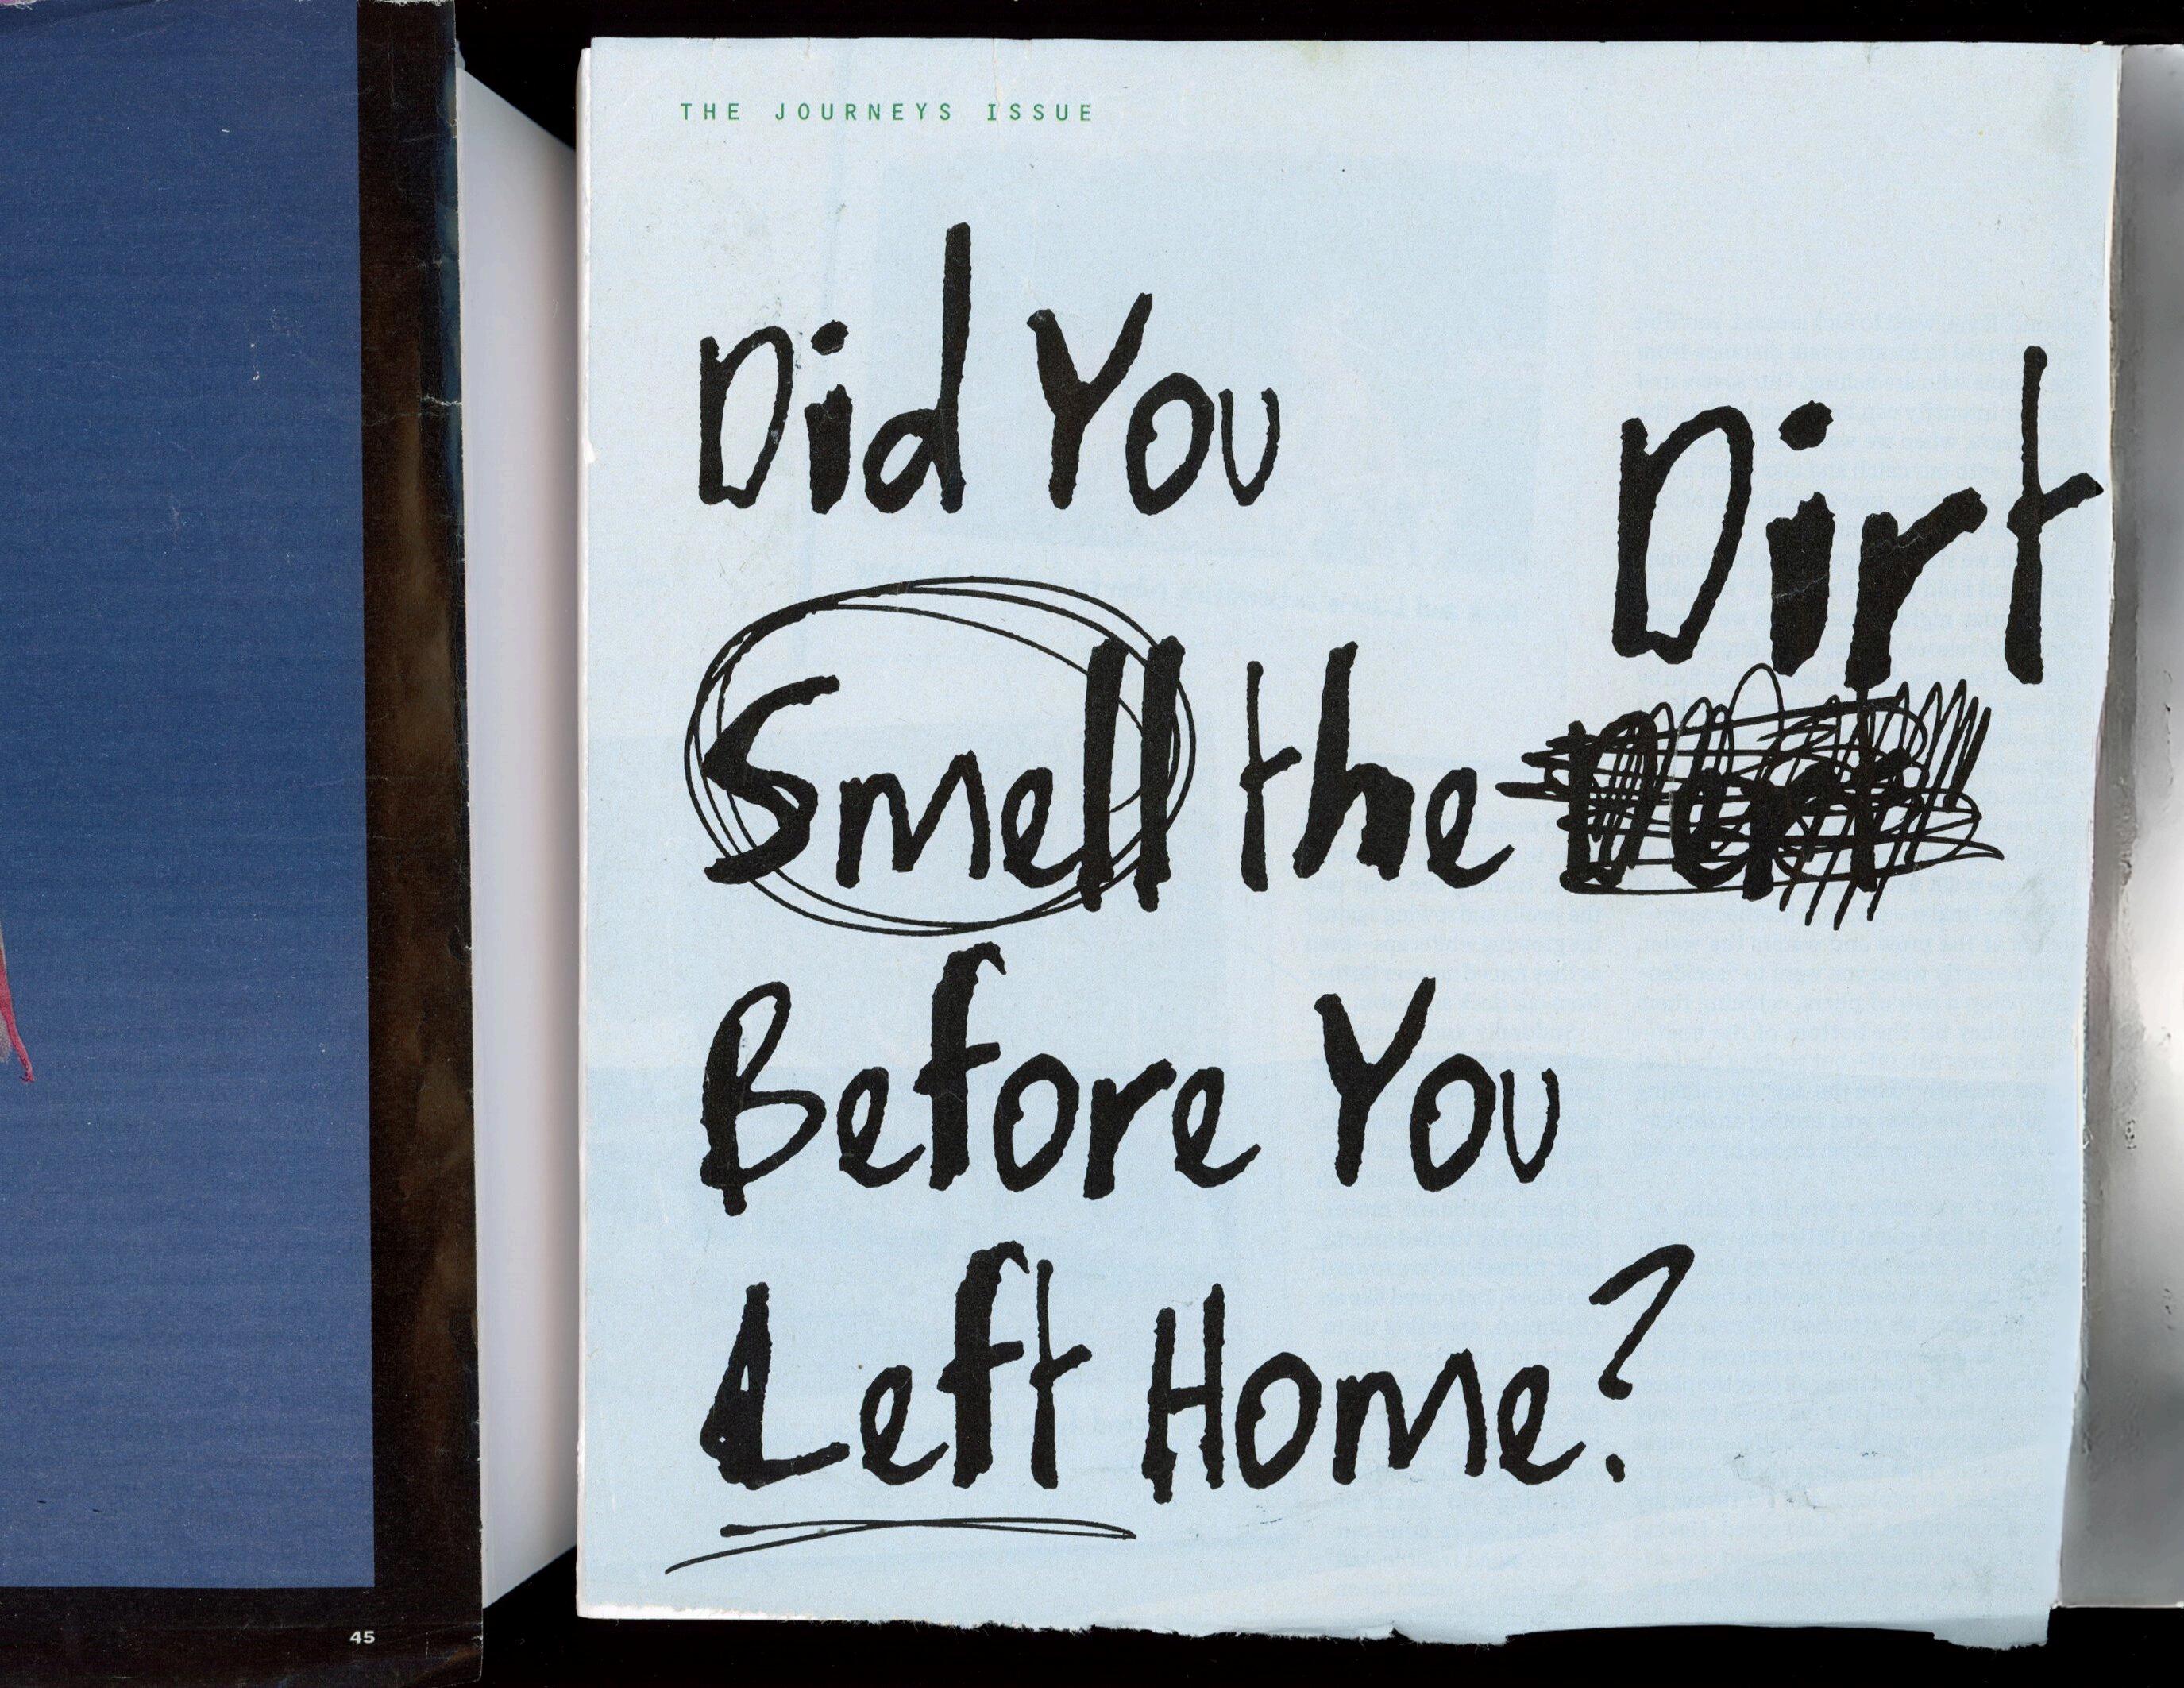 THE JOURNEYS ISSUE
Did You
Dirt
Smell the
Before You
Left Home?
45